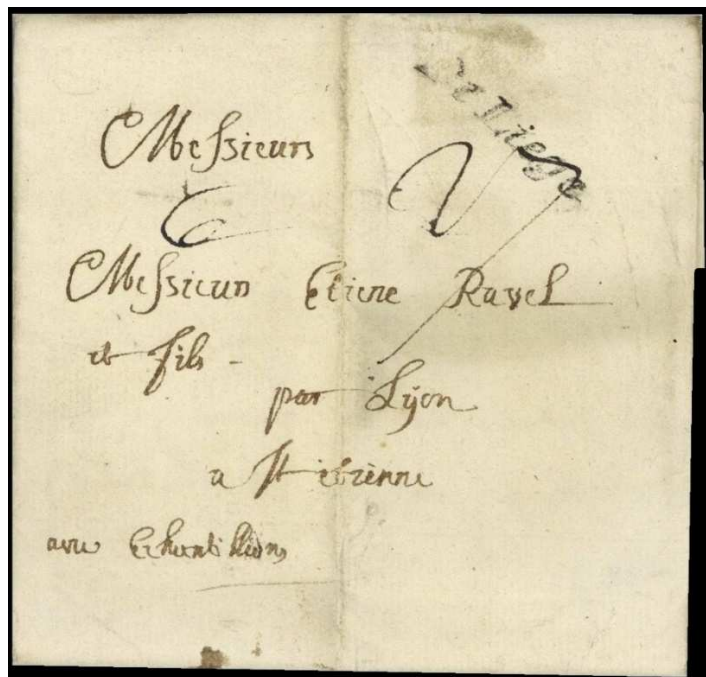 De Liege
Messieurs
Messieurs Etiene Ravel
et fils
par Lyon
a St etienne
avec Echantillions